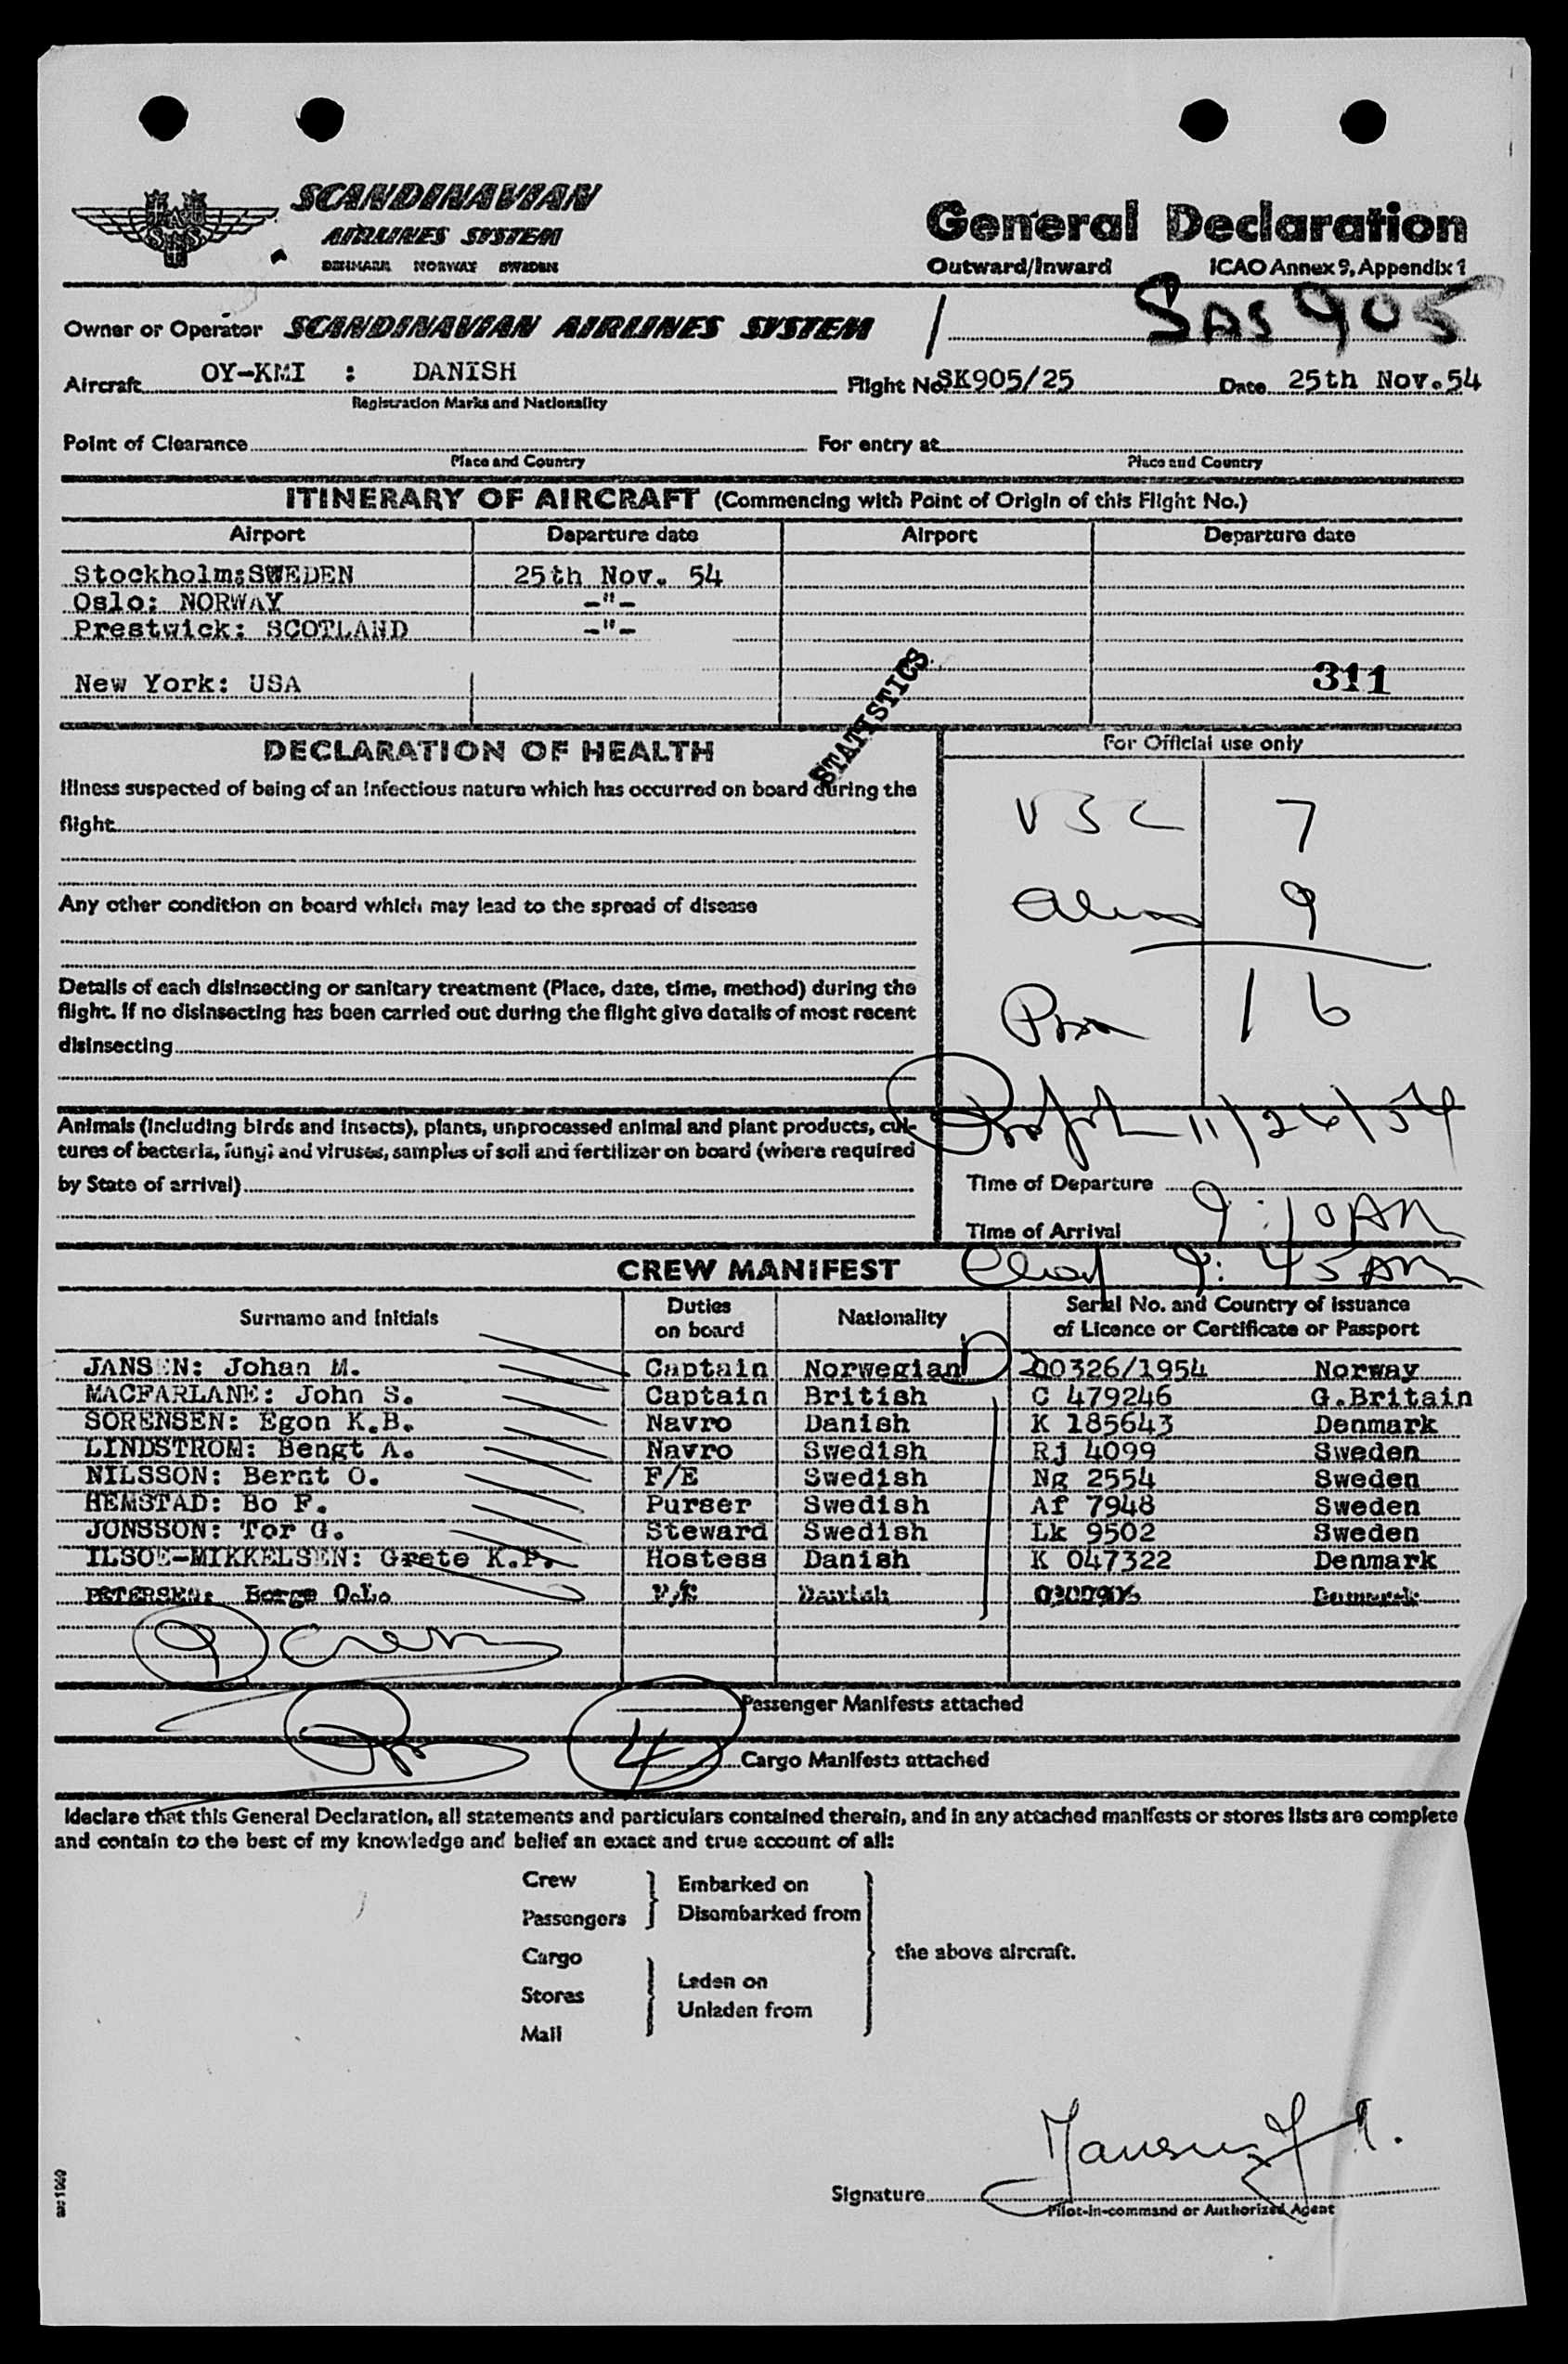 SCANDINAVIAN
AIRLINES SYSTEM
DENMARK NORWAY SWEDEN
General Declaration
Outward/Inward ICAO Annex 9, Appendix 1
SAS 905
Owner or Operator SCANDINAVIAN AIRLINES SYSTEM
Aircraft OY-KMI : DANISH Flight No SK905/25 Date 25th Nov. 54
Registration Marks and Nationality
Point of Clearance For entry at
Place and Country Place and Country
ITINERARY OF AIRCRAFT (Commencing with Point of Origin of this Flight No.)
Airport Departure date Airport Departure date
Stockholm:SWEDEN 25th Nov. 54
Oslo: NORWAY -"-
Prestwick: SCOTLAND -"-
New York: USA 311
STATISTICS
DECLARATION OF HEALTH
Illness suspected of being of an infectious nature which has occurred on board during the
flight
Any other condition on board which may lead to the spread of disease
Details of each disinsecting or sanitary treatment (Place, date, time, method) during the
flight. If no disinsecting has been carried out during the flight give details of most recent
disinsecting
Animals (including birds and insects), plants, unprocessed animal and plant products, cul-
tures of bacteria, fungi and viruses, samples of soil and fertilizer on board (where required
by State of arrival)
For Official use only
USC 7
9
16
11/26/54
Time of Departure
Time of Arrival 9:10 AM
9:45 AM
CREW MANIFEST
Surname and Initials Duties on board Nationality Serial No. and Country of Issuance of Licence or Certificate or Passport
JANSEN: Johan M. Captain Norwegian 200326/1954 Norway
MACFARLANE: John S. Captain British C 479246 G.Britain
SORENSEN: Egon K.B. Navro Danish K 185643 Denmark
LINDSTROM: Bengt A. Navro Swedish Rj 4099 Sweden
NILSSON: Bernt O. F/E Swedish Ng 2554 Sweden
HEMSTAD: Bo F. Purser Swedish Af 7948 Sweden
JONSSON: Tor G. Steward Swedish Lk 9502 Sweden
ILSOE-MIKKELSEN: Grete K.P. Hostess Danish K 047322 Denmark
PETERSEN: Borge F/E Danish Denmark
9 Crew
Passenger Manifests attached
4 Cargo Manifests attached
I declare that this General Declaration, all statements and particulars contained therein, and in any attached manifests or stores lists are complete
and contain to the best of my knowledge and belief an exact and true account of all:
Crew
Passengers
Embarked on
Disembarked from
Cargo
Stores
Mail
Laden on
Unladen from
the above aircraft.
Signature
Pilot-in-command or Authorized Agent